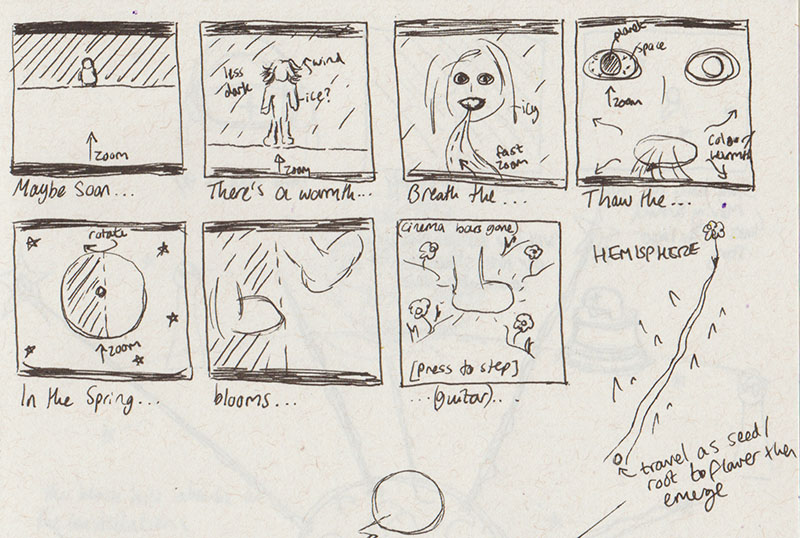 zoom
Maybe Soon...
less
dark
wind
ice?
zoom
There's a warmth...
icy
fast
zoom
Breath the....
planet
space
zoom
colour/
warmth
Thaw the...
rotate
zoom
In the Spring...
blooms...
(cinema bars gone)
[press to step]
...(guitar)...
HEMISPHERE
travel as seed/
root to flower then
emerge